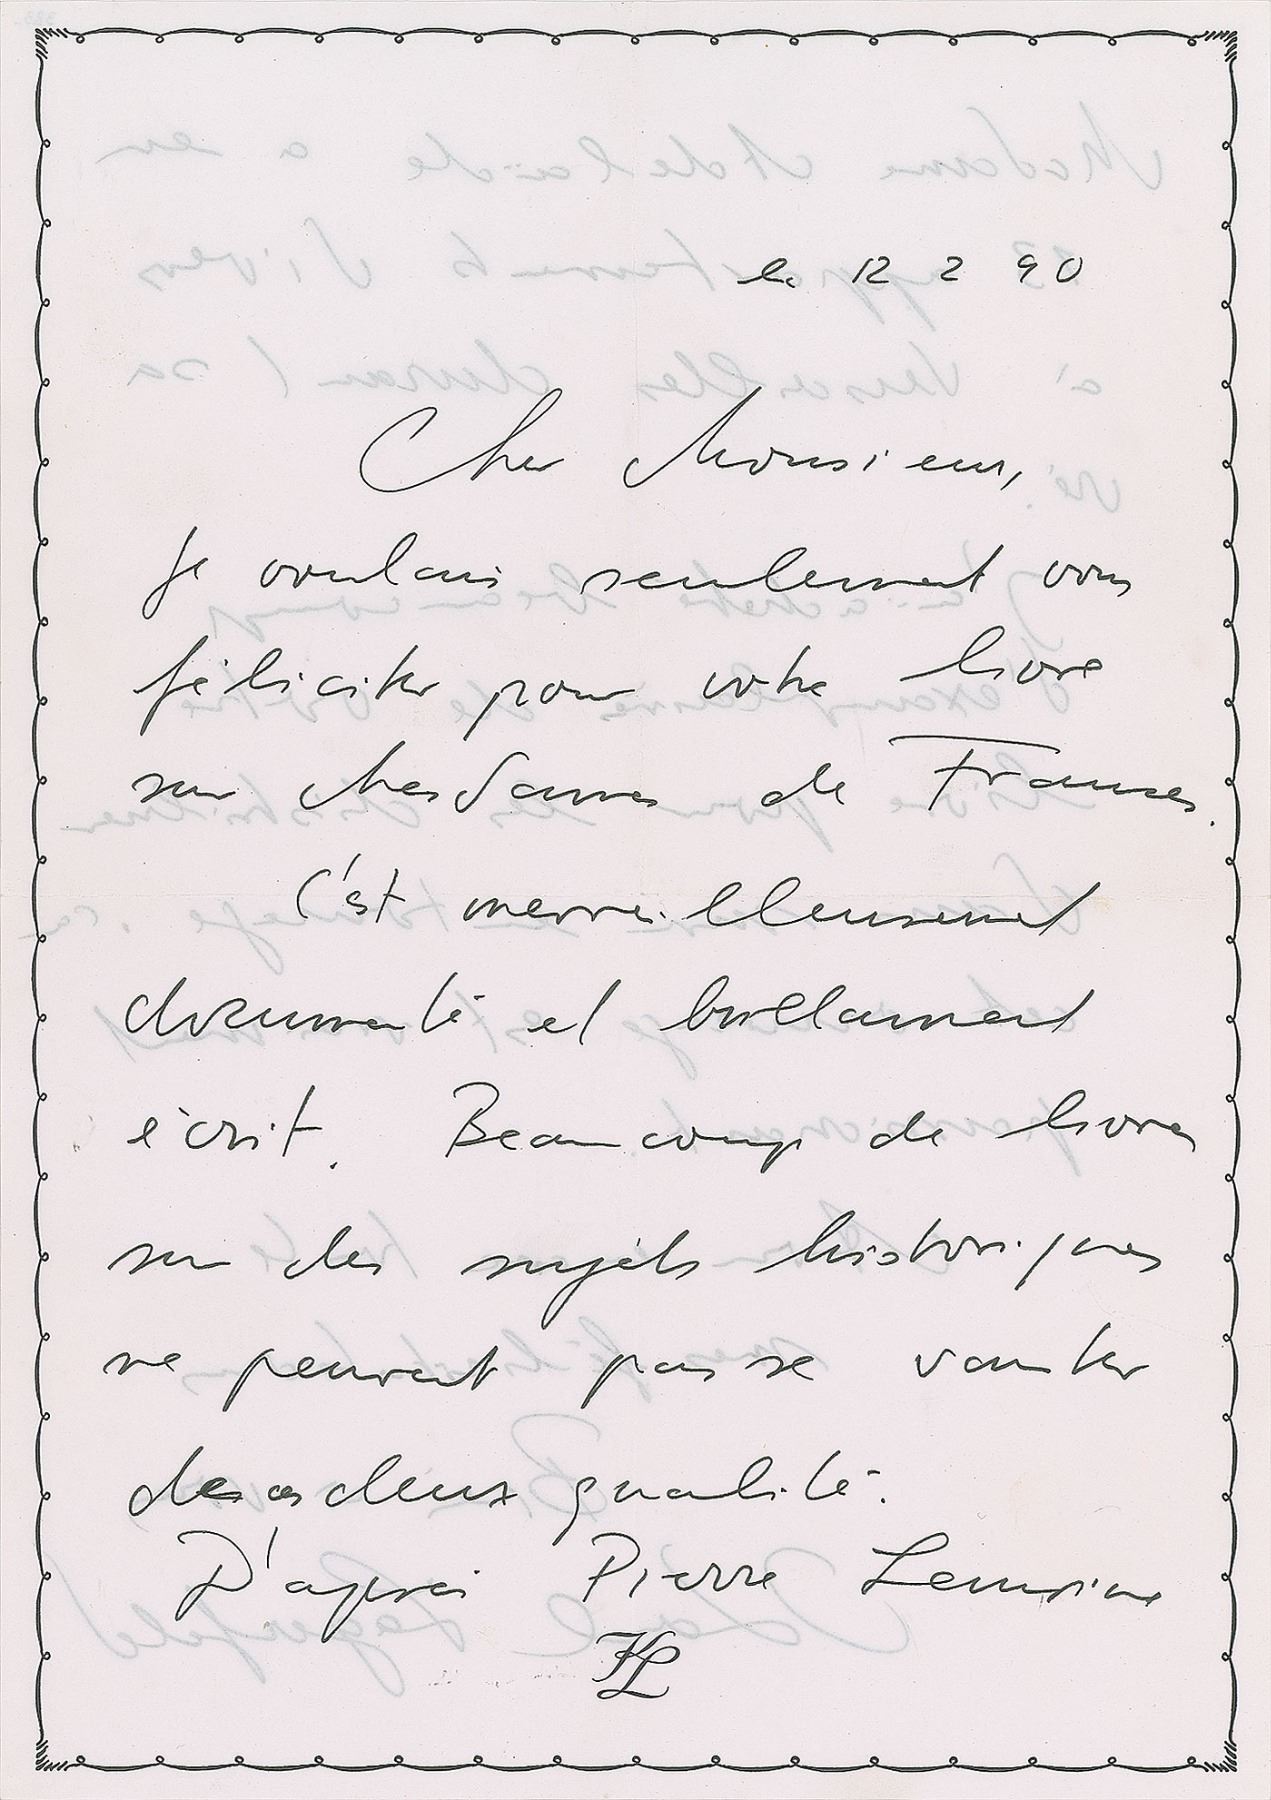 le 12 2 90
Cher Monsieur,
Je voulais seulement vous
féliciter pour votre livre
sur Mesdames de France.
C'est merveilleusement
documenté et brillament
écrit. Beaucoup de livres
sur des sujets historiques
ne peuvent pas se vanter
de ces deux qualité.
D'après Pierre Lemoine
KL